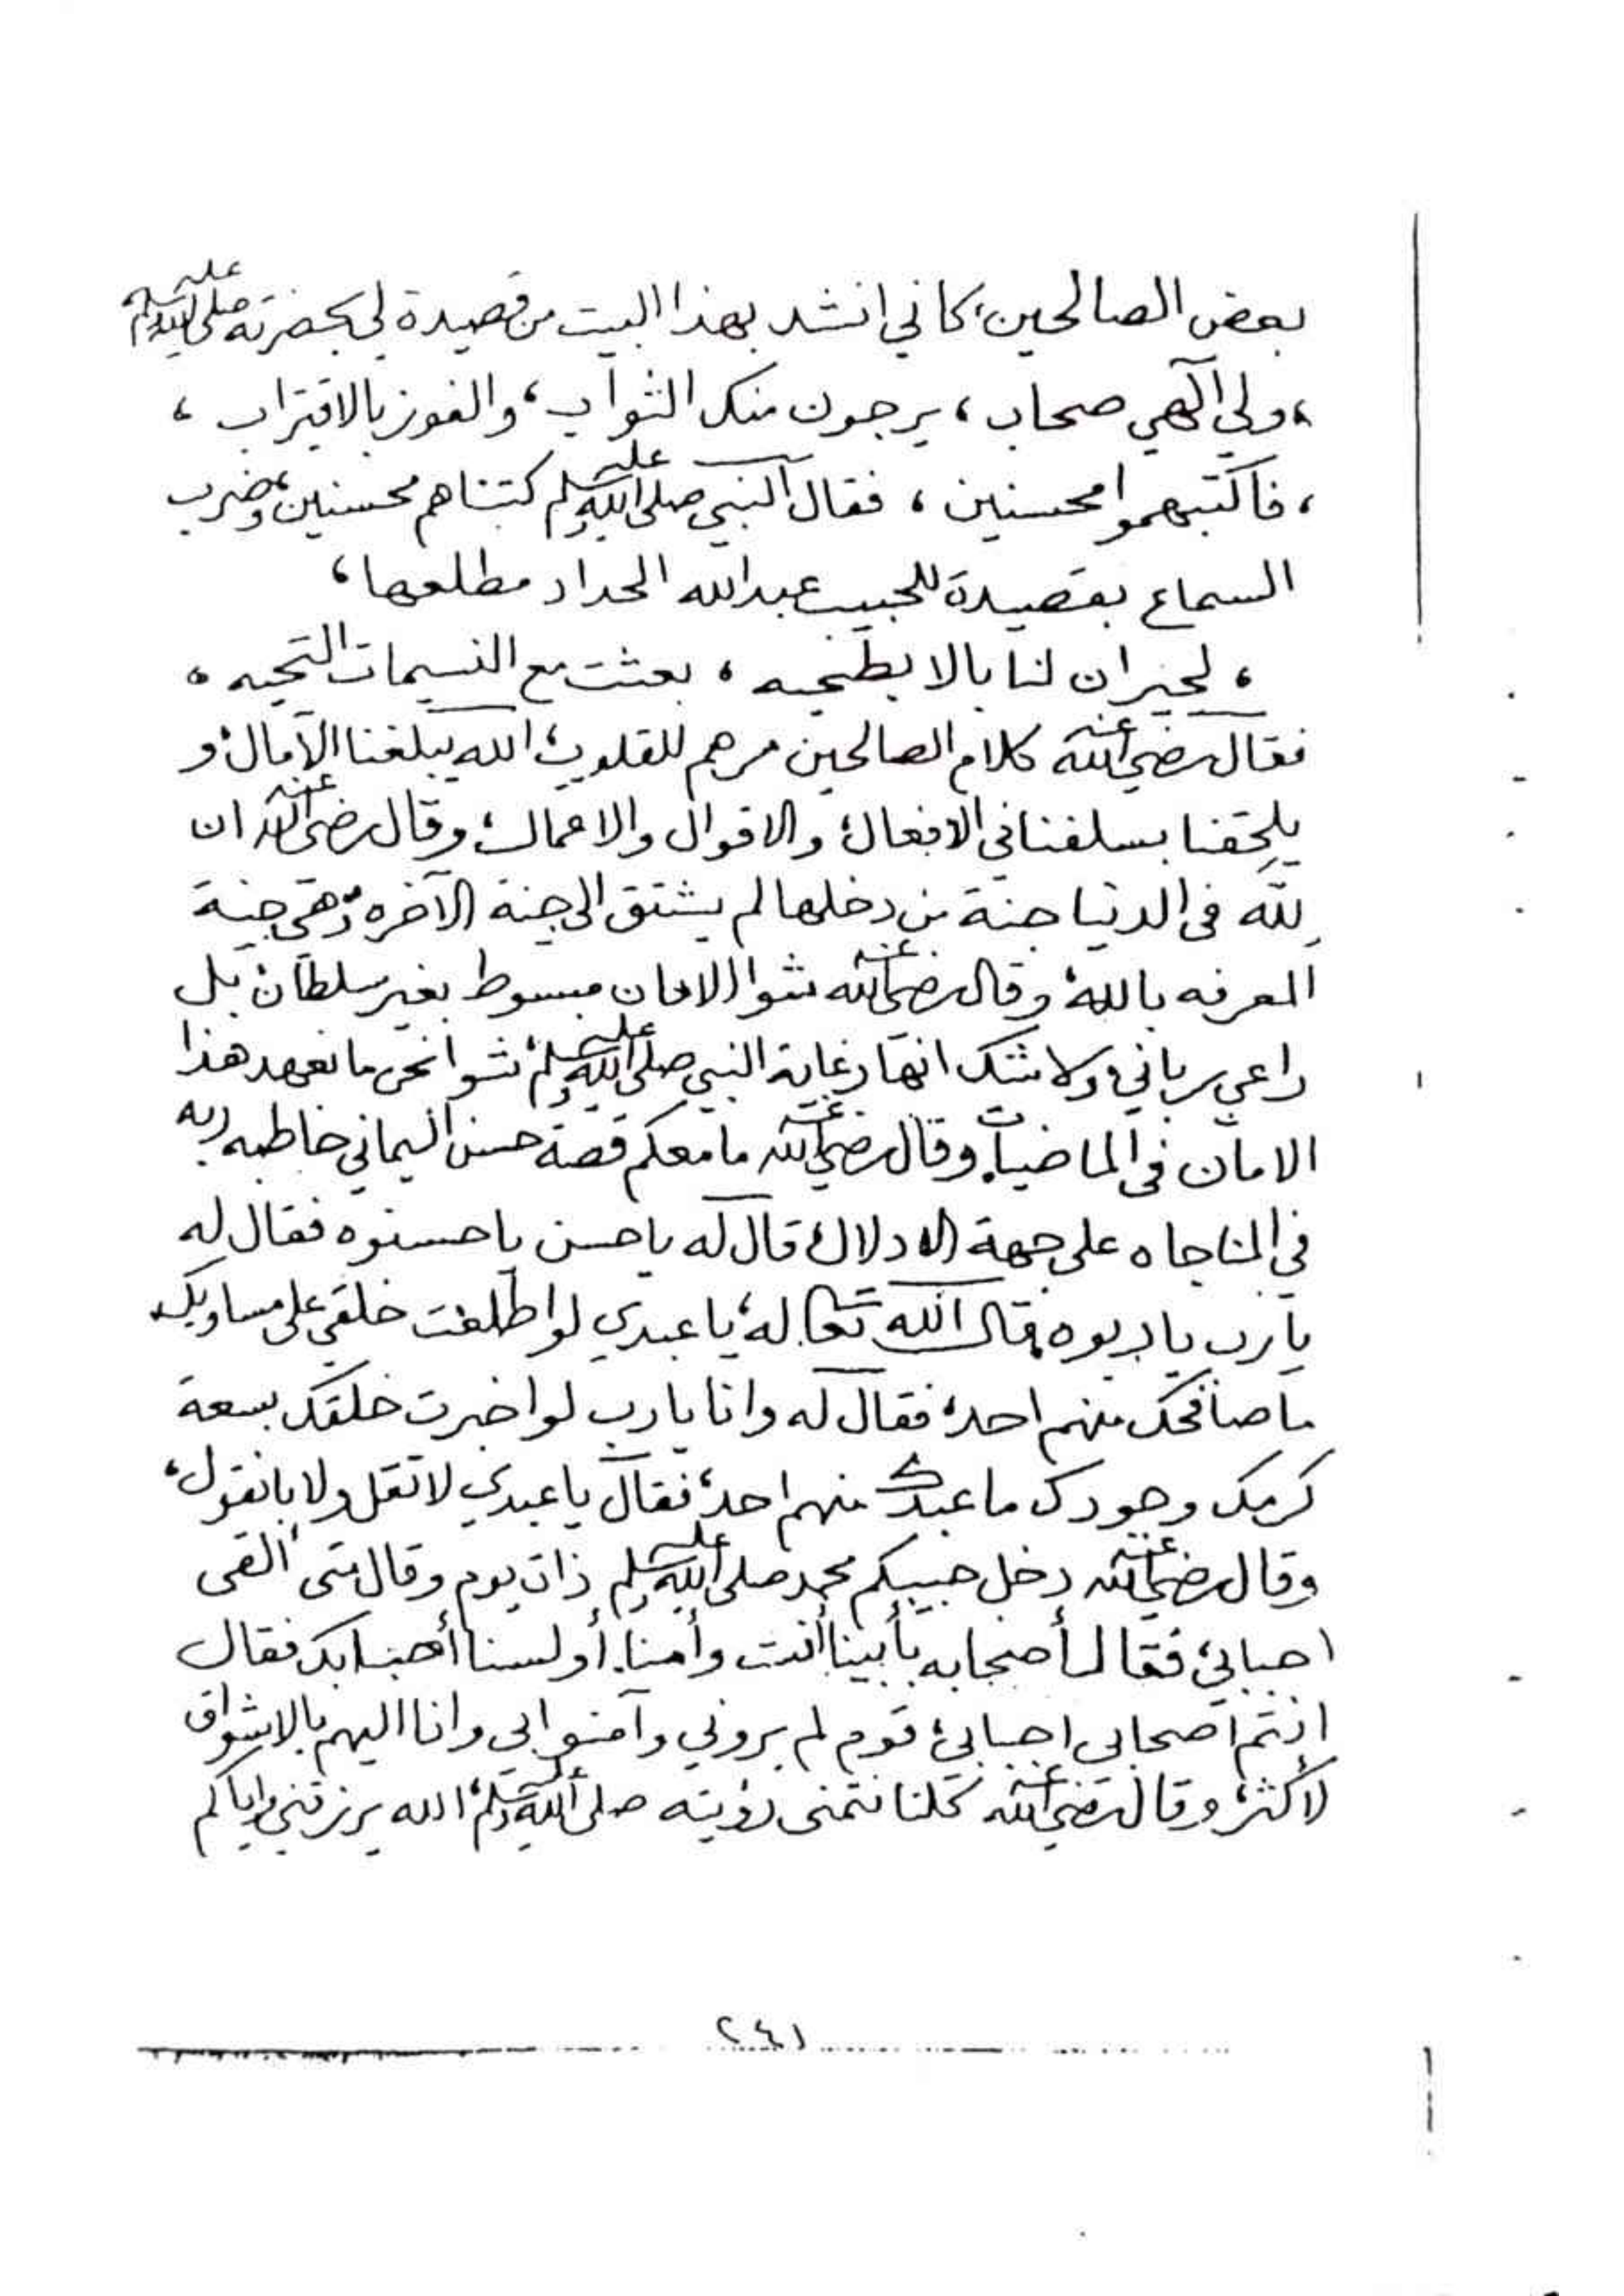 بعض الصالحين، كاني انشد بهذا البيت من قصيدة لي بحضرته صلى الله عليه وسلم
، ولي الهي صحاب ، يرجون منك الثواب ، والفوز بالاقتراب ،
، فاكتبهموا محسنين ، فقال النبي صلى الله عليه وسلم كتبناهم محسنين، وضرب
السماع بقصيدة للحبيب عبدالله الحداد مطلعها ،
، لجيران لنا بالابطحيه ، بعثت مع النسيمات التحيه ،
فقال رضي الله عنه كلام الصالحين مرهم للقلوب، الله يبلغنا الآمال، و
يلحقنا بسلفنا في الافعال، والاقوال والاعمال، وقال رضي الله عنه ان
لله في الدنيا جنة من دخلها لم يشتق الى جنة الآخره، وهي جنة
المعرفه بالله، وقال رضي الله عنه شوا الامان مبسوط بغير سلطان، بل
راعي رباني، ولا شك انها رعاية النبي صلى الله عليه وسلم، شوا نحن ما نعهد هذا
الامان في الماضيات، وقال رضي الله عنه ما معكم قصة حسن اليماني خاطبه ربه
في المناجاه على جهة الادلال، قال له يا حسن يا حسنوه فقال له
يا رب يا ربوه، قال الله تعالى له، يا عبدي لو اطلعت خلقي على مساويك
ما صافحك منهم احد، فقال له وانا يا رب لو اخبرت خلقك بسعة
كرمك وجودك ما عبدك منهم احد، فقال يا عبدي لا تقل ولا بانقول،
وقال رضي الله عنه دخل حبيبكم محمد صلى الله عليه وسلم ذات يوم وقال متى ألقى
احبابي، فقال أصحابه بأبينا أنت وأمنا. أولسنا أحبابك فقال
انتم اصحابي احبابي، قوم لم يروني وآمنوا بي وانا اليهم بالاشواق
لأكثر، وقال رضي الله عنه كلنا نتمنى رؤيته صلى الله عليه وسلم، الله يرزقني واياكم
٢٤١